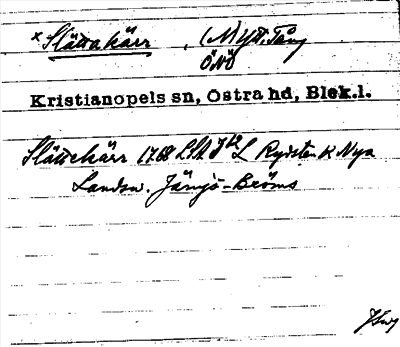 x Slättakärr , (M) ytt. Täng
ÖNÖ
Kristianopels sn, Östra hd, Blek.l.
Slättekärr 1768 LSA J L Rydsten K Nya
Landsv. Jämjö-Bröms